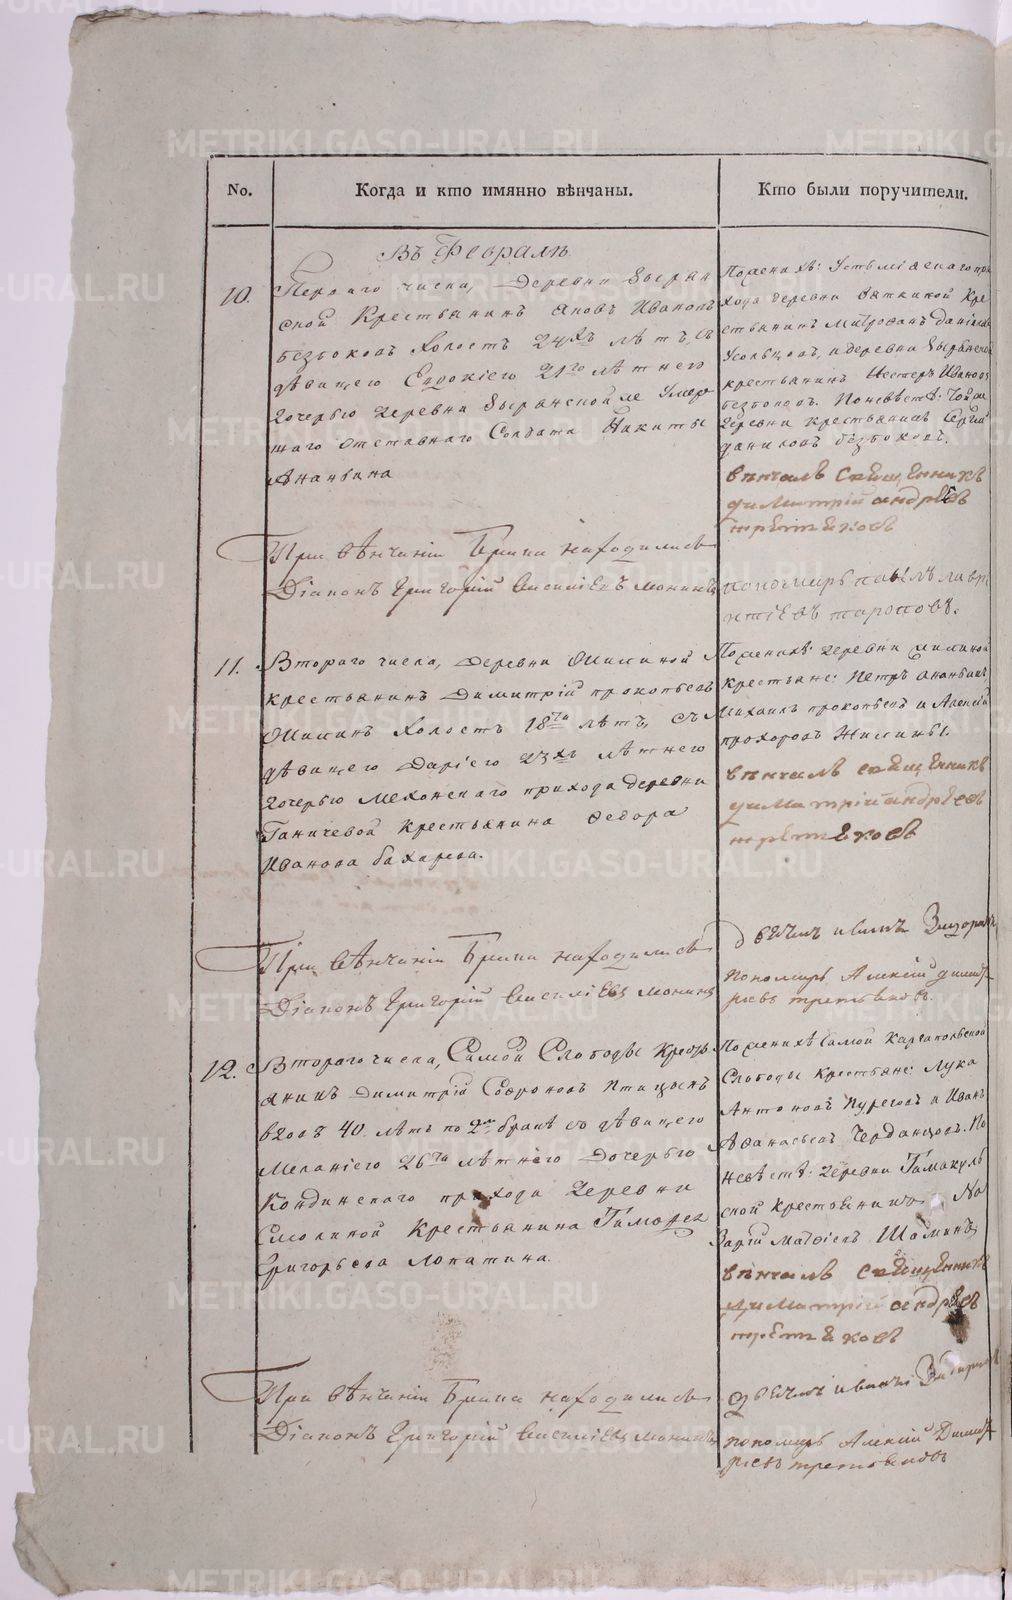 No.
Когда и кто имянно вѣнчаны.
Кто были поручители.
Въ Февралѣ
10.
Перваго числа, Деревни Зырян
ской Крестьянинъ Яковъ Ивановъ
безбоковъ Холостъ 24хъ лѣтъ, съ
дѣвицею Евдокіею 21го лѣтнею
дочерью деревни Зырянской же Умер
шаго отставнаго Солдата Никиты
Ананьина
При вѣнчаніи Брака находились
Діаконъ Григорій Васильевъ
По женихѣ: Усть міяскаго при
хода деревни Вяткиной Кре
стьянинъ Митрофанъ
Усольцовъ, и деревни Зырянской
крестьянинъ Нестеръ Ивановъ
безбоковъ. По невѣстѣ: Той же
деревни крестьянинъ Сергій
даниловъ безбоковъ.
вѣнчалъ священникъ
димитрій андрѣевъ
третьяковъ
пономарь павелъ лавре
нтіевъ тороповъ.
11.
Втораго числа, деревни Жилиной
крестьянинъ Димитрій прокопьевъ
Жилинъ Холостъ 18ти лѣтъ, съ
дѣвицею Даріею 23хъ лѣтнею
дочерью Мехонскаго прихода деревни
Ганичевой крестьянина Федора
Иванова бахарева.
При вѣнчаніи Брака находились
Діаконъ Григорій Васильевъ
По женихѣ: деревни жилиной
крестьяне: Петръ ананьинъ,
Михаилъ прокопьевъ и Алексій
прохоровъ Жилины.
вѣнчалъ священникъ
димитрій андрѣевъ
третьяковъ
пономарь Алексій димит
ріевъ третьяковъ.
12.
Втораго числа, Самой Слободы Кресть
янинъ Димитрій Софроновъ Птицынъ
вдовъ 40. лѣтъ по 2мъ бракѣ съ дѣвицею
Меланіею 26ти лѣтнею Дочерью
Кондинскаго прихода деревни
Смолиной Крестьянина Тимофея
Григорьева Лопатина.
При вѣнчаніи Брака находились
Діаконъ Григорій Васильевъ
По женихѣ Самой Каргапольской
Слободы крестьяне: Лука
Антоновъ Пуреговъ и Иванъ
Афанасьевъ Черданцовъ. По
невѣстѣ: деревни Тамакуль
ской крестьянинъ На
зарій Матфіевъ Шаминъ,
вѣнчалъ священникъ
димитрій андрѣевъ
третьяковъ
пономарь Алексій Димит
ріевъ третьяковъ
METRIKI.GASO-URAL.RU